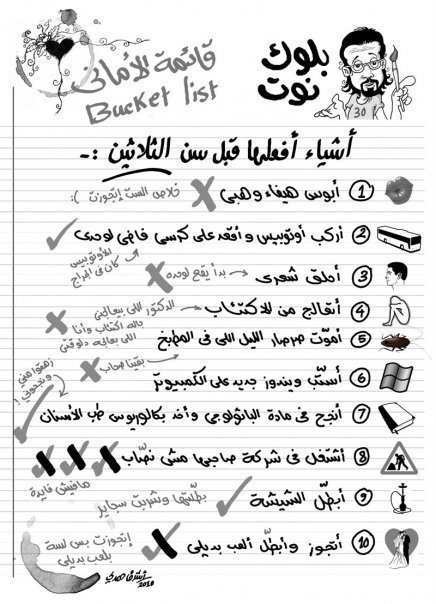 قائمة الأماني
Bucket list
بلوك
نوت
30
أشياء أفعلها قبل سن الثلاثين :-
١ أبوس هيفاء وهبي ✗ خلاص الست إتجوزت :(
٢ أركب أوتوبيس و أقعد على كرسي فاضي لوحدي ✓
الأوتوبيس
كان في الجراج
٣ أحلق شعري ✗ بدأ يقع لوحده
٤ أتعالج من الاكتئاب ✗ الدكتور اللي بيعالجني
جاله اكتئاب وأنا
اللي بعالجه دلوقتي
٥ أموّت صرصار الليل اللي في المطبخ ✗ بقينا صحاب
٦ أسطّب ويندوز جديد على الكمبيوتر ✗
٧ أنجح في مادة الباثولوجي و أخد بكالوريوس طب الأسنان ✓
زهقوا مني
و نجحوني !
٨ أشتغل في شركة صاحبها مش نصّاب ✗ ✗ ✗
مافيش فايدة
٩ أبطّل الشيشة ✓ بطّلتها وشربت سجاير
١٠ أتجوز وأبطّل ألعب بديلي ✗ إتجوزت بس لسة
بلعب بديلي
أشرف حمدي
2010